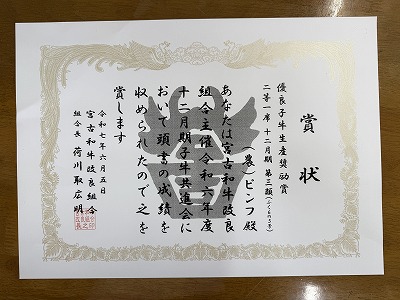 賞状
優良子牛生産奨励賞
二等一席 十二月期 第三類(ふくもろき)
(農)ビンフ殿
あなたは宮古和牛改良
組合主催令和六年度
十二月期子牛共進会に
おいて頭書の成績を
収められたので之を
賞します
令和七年六月五日
宮古和牛改良組合
組合長 荷川取広明